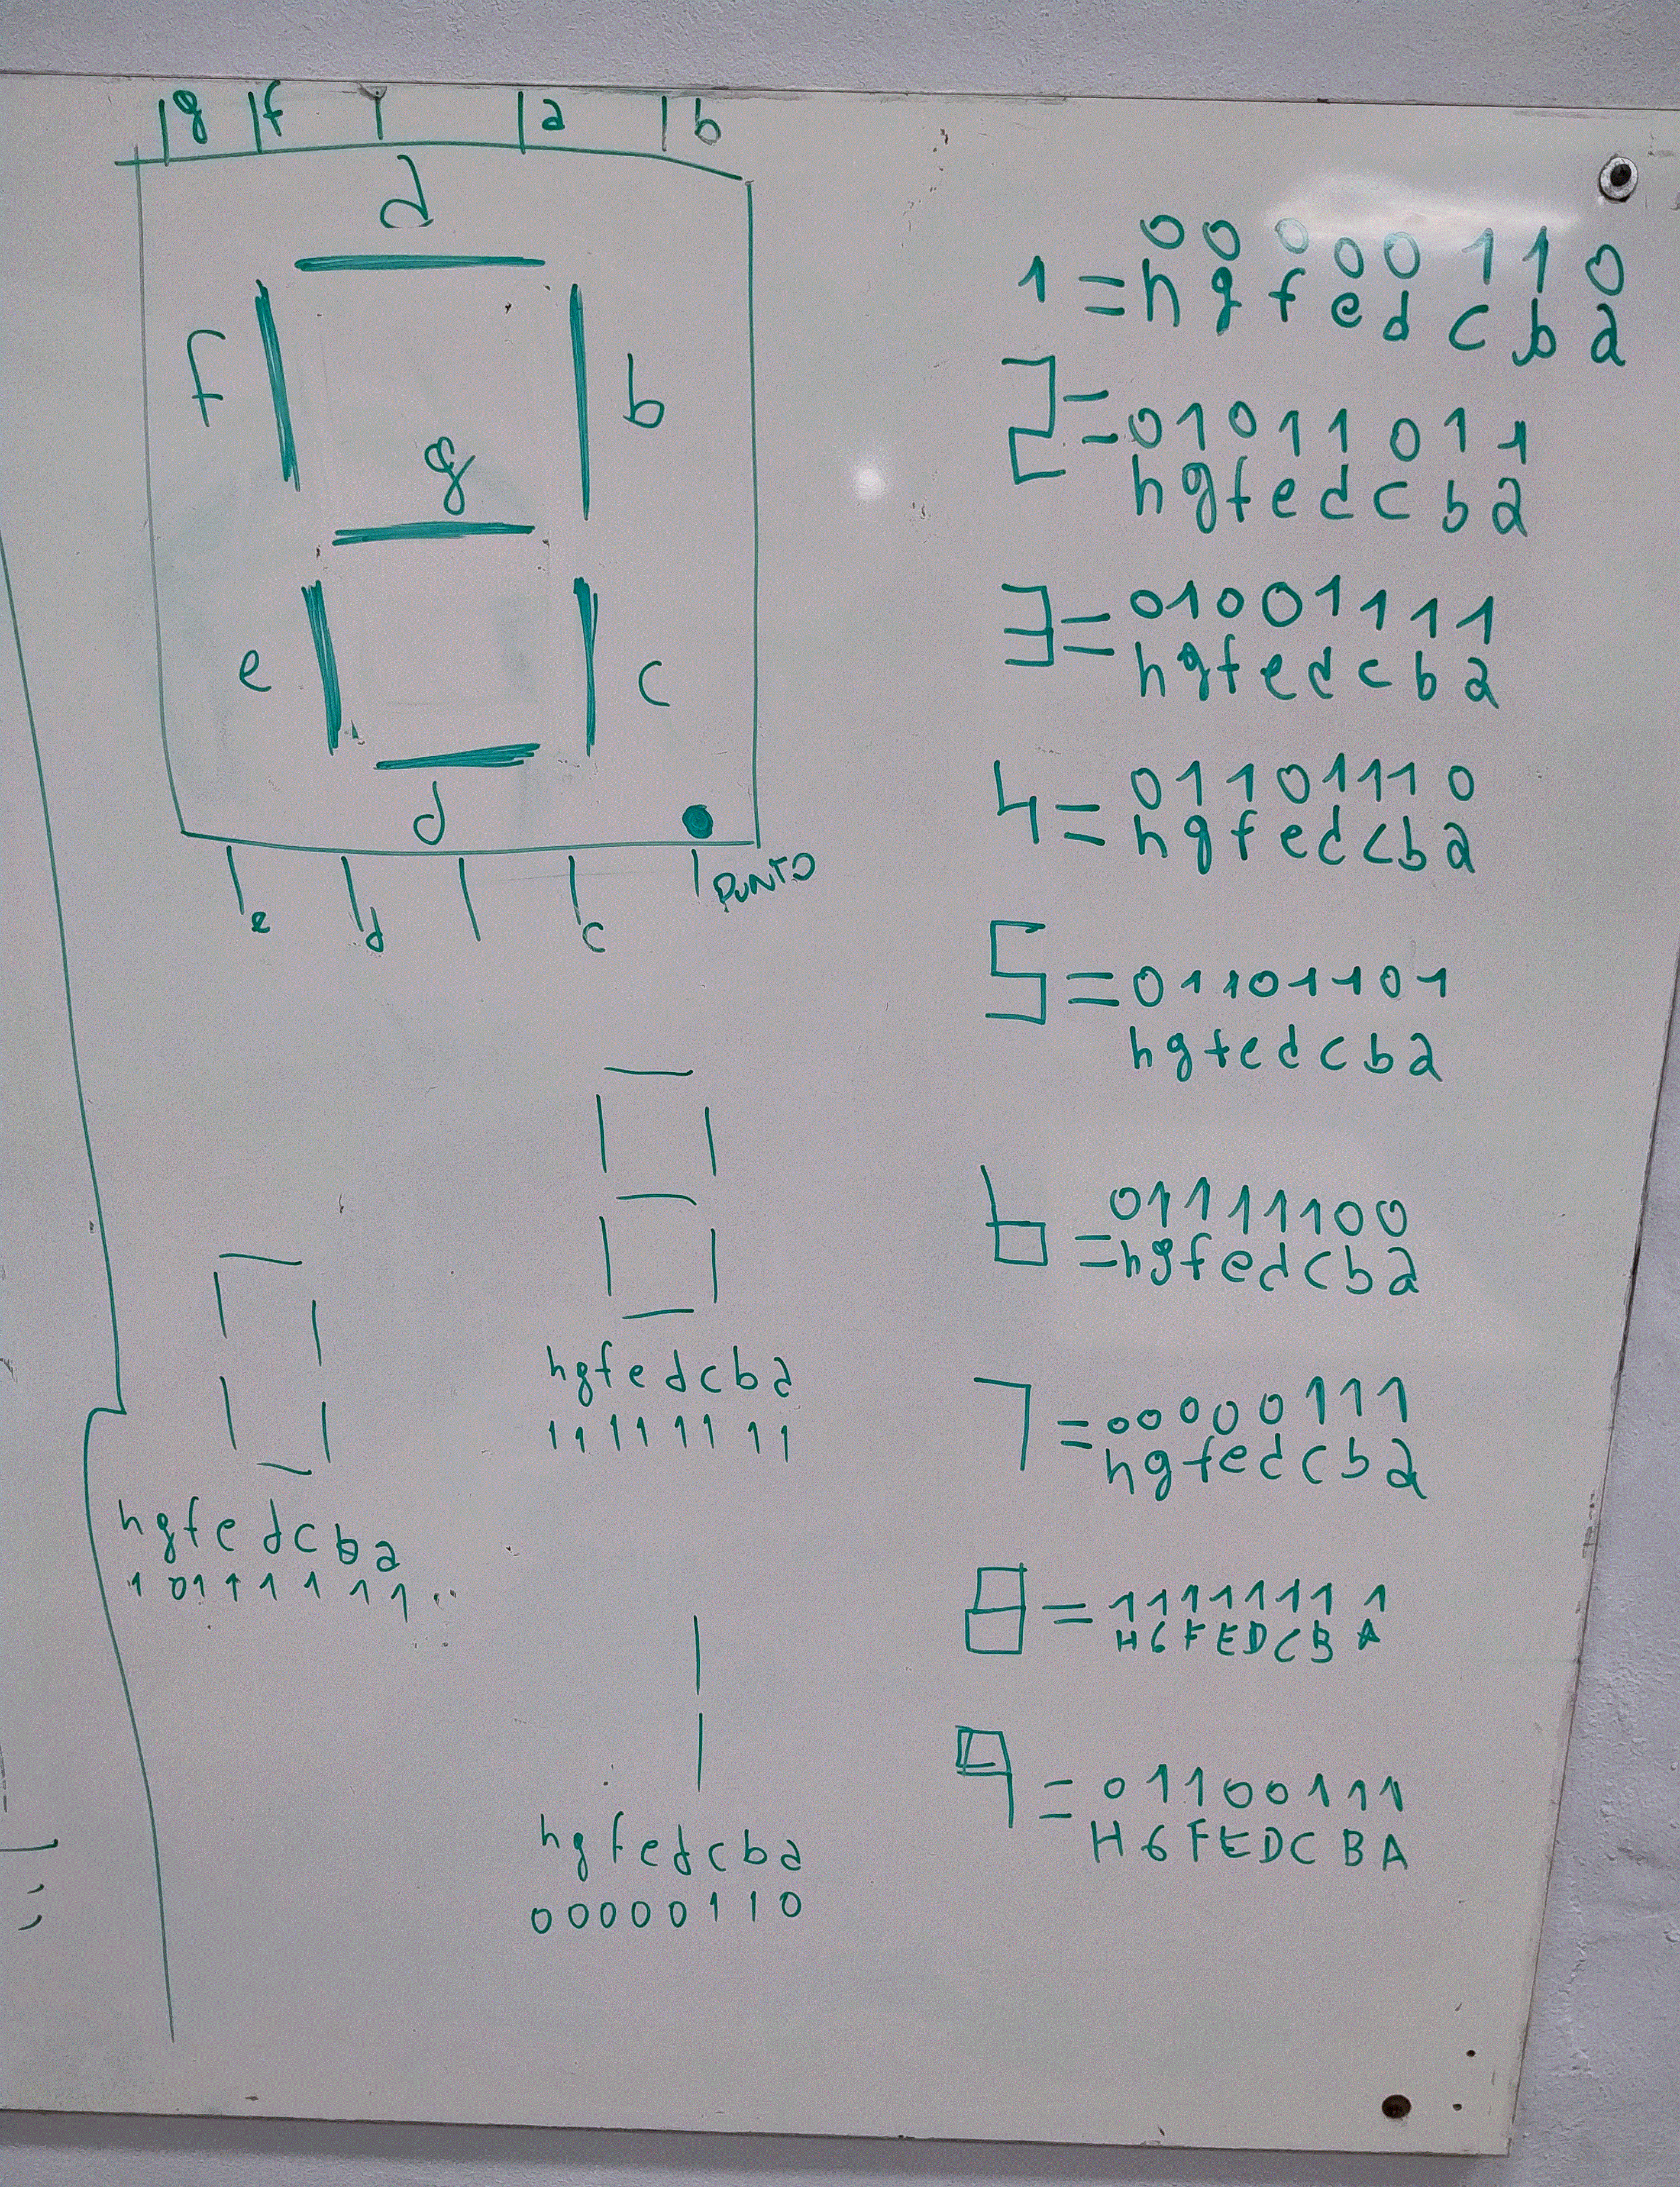 g f a b
d
f b
g
e c
d
e d c PUNTO
hgfedcba
11111111
hgfedcba
10111111
hgfedcba
00000110
00000110
1 = hgfedcba
2 = 01011011
hgfedcba
3 = 01001111
hgfedcba
4 = 01101110
hgfedcba
5 = 01101101
hgfedcba
6 01111100
= hgfedcba
7 = 00000111
hgfedcba
8 = 11111111
HGFEDCBA
9 = 01100111
HGFEDCBA